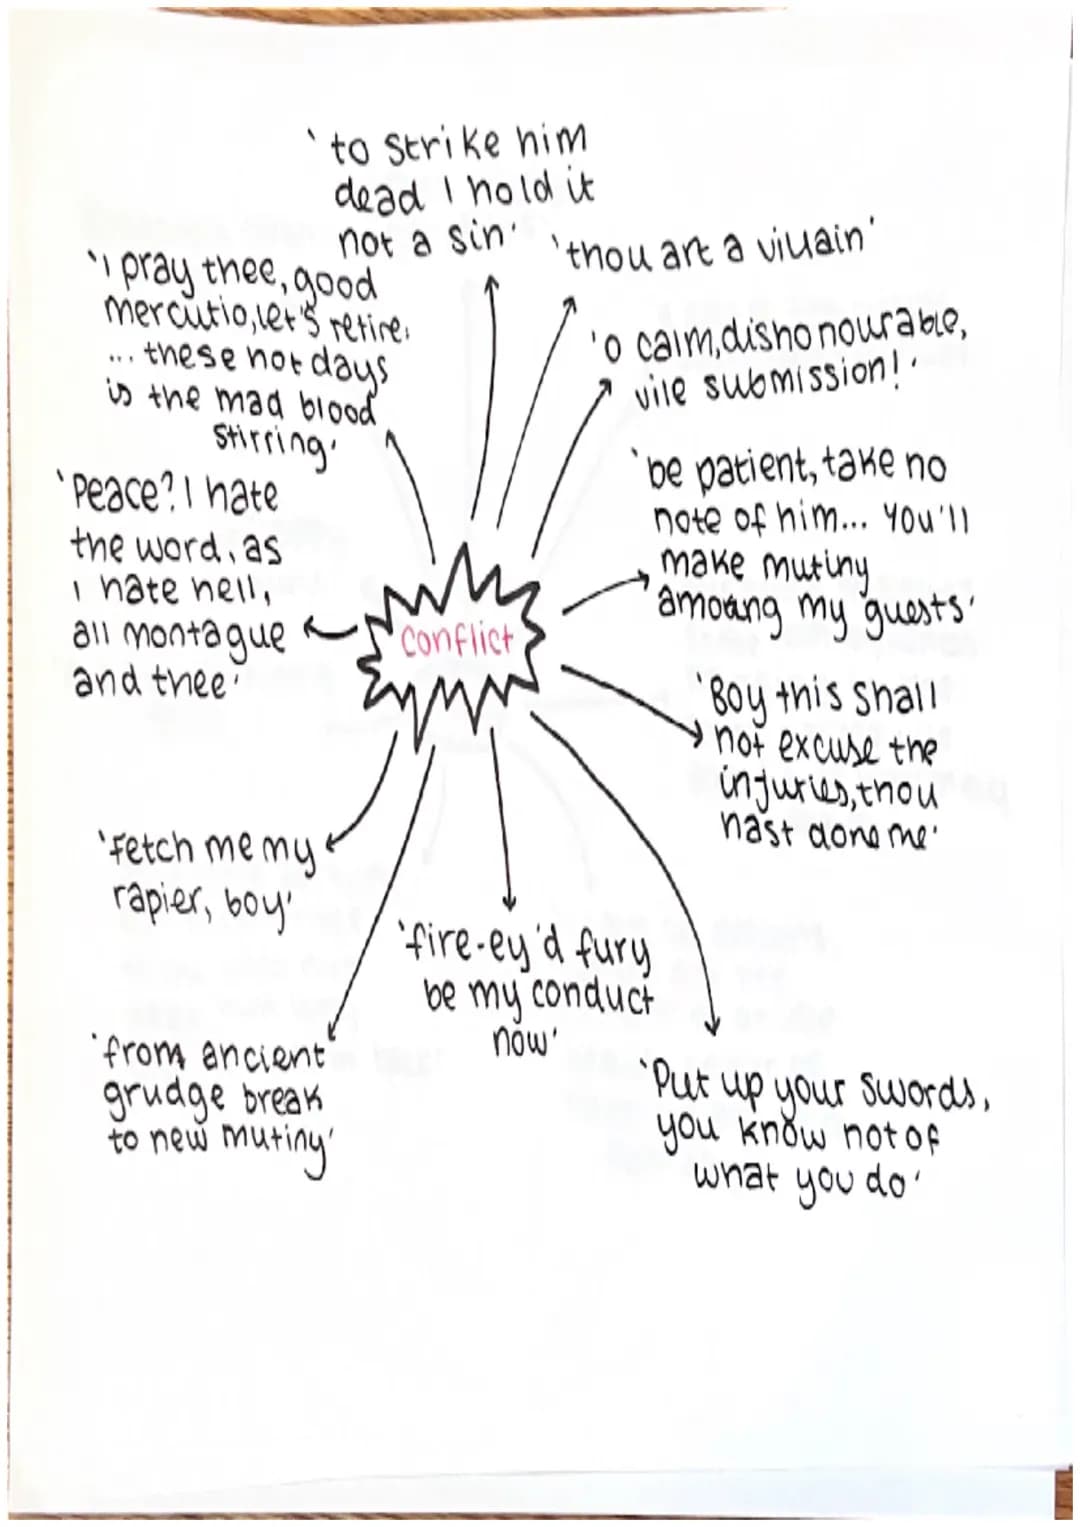 'to strike him
dead I hold it
not a sin'
'thou art a villain'
'I pray thee, good
mercutio, let's retire.
... these hot days
is the mad blood
stirring'
'O calm, dishonourable,
vile submission!'
'Peace? I hate
the word, as
I hate hell,
all montague
and thee'
'be patient, take no
note of him... You'll
make mutiny
amoung my guests'
Conflict
'Boy this shall
not excuse the
injuries, thou
hast done me'
'Fetch me my
rapier, boy'
'fire-ey'd fury
be my conduct
now'
'from ancient
grudge break
to new mutiny'
'Put up your swords,
you know not of
what you do'